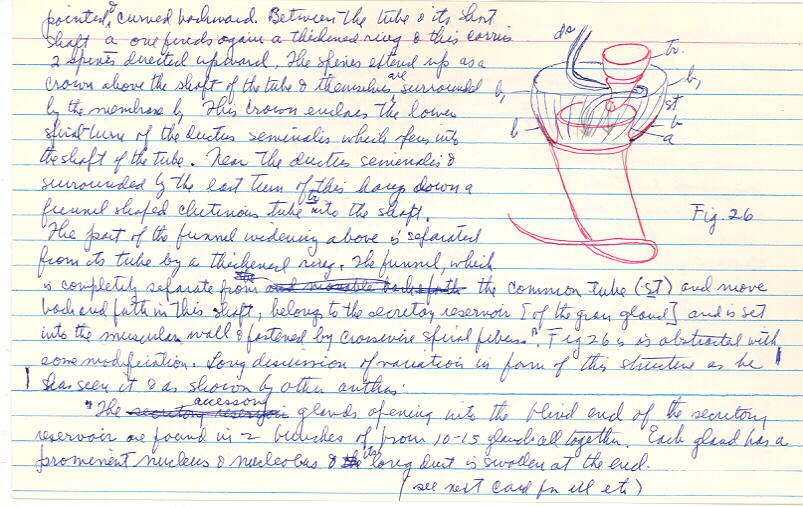 pointed & curved backward. Between the tube & its short
shaft a one finds again a thickened ring & this carries
2 spines directed upward. The spines extend up as a
crown above the shaft of the tube & themselves are surrounded
by the membrane b, This crown encloses the lower
spiral turn of the ductus seminalis which opens into
the shaft of the tube. Near the ductus seminalis &
surrounded by the last turn of this hangs down a
funnel shaped chitinous tube tr into the shaft.
The part of the funnel widening above is separated
from its tube by a thickened ring. The funnel, which
is completely separate from the and movable back & forth the common tube (st) and move
back and forth in this shaft, belongs to the secretory reservoir [of the gran gland] and is set
into the muscular wall & fastened by crosswise spiral fibers". Fig 26 is abstracted with
some modification. Long discussion of variation in form of this structure as he
has seen it & as shown by other authors.
"The secretory reservoir accessory glands opening into the blind end of the secretory
reservoir are found in 2 bunches of from 10-15 glands all together. Each gland has a
prominent nucleus & nucleolus & the its long duct is swollen at the end.
(see next card for ill etc)
ds
tr.
b,
b,
st
b
b
a
Fig. 26